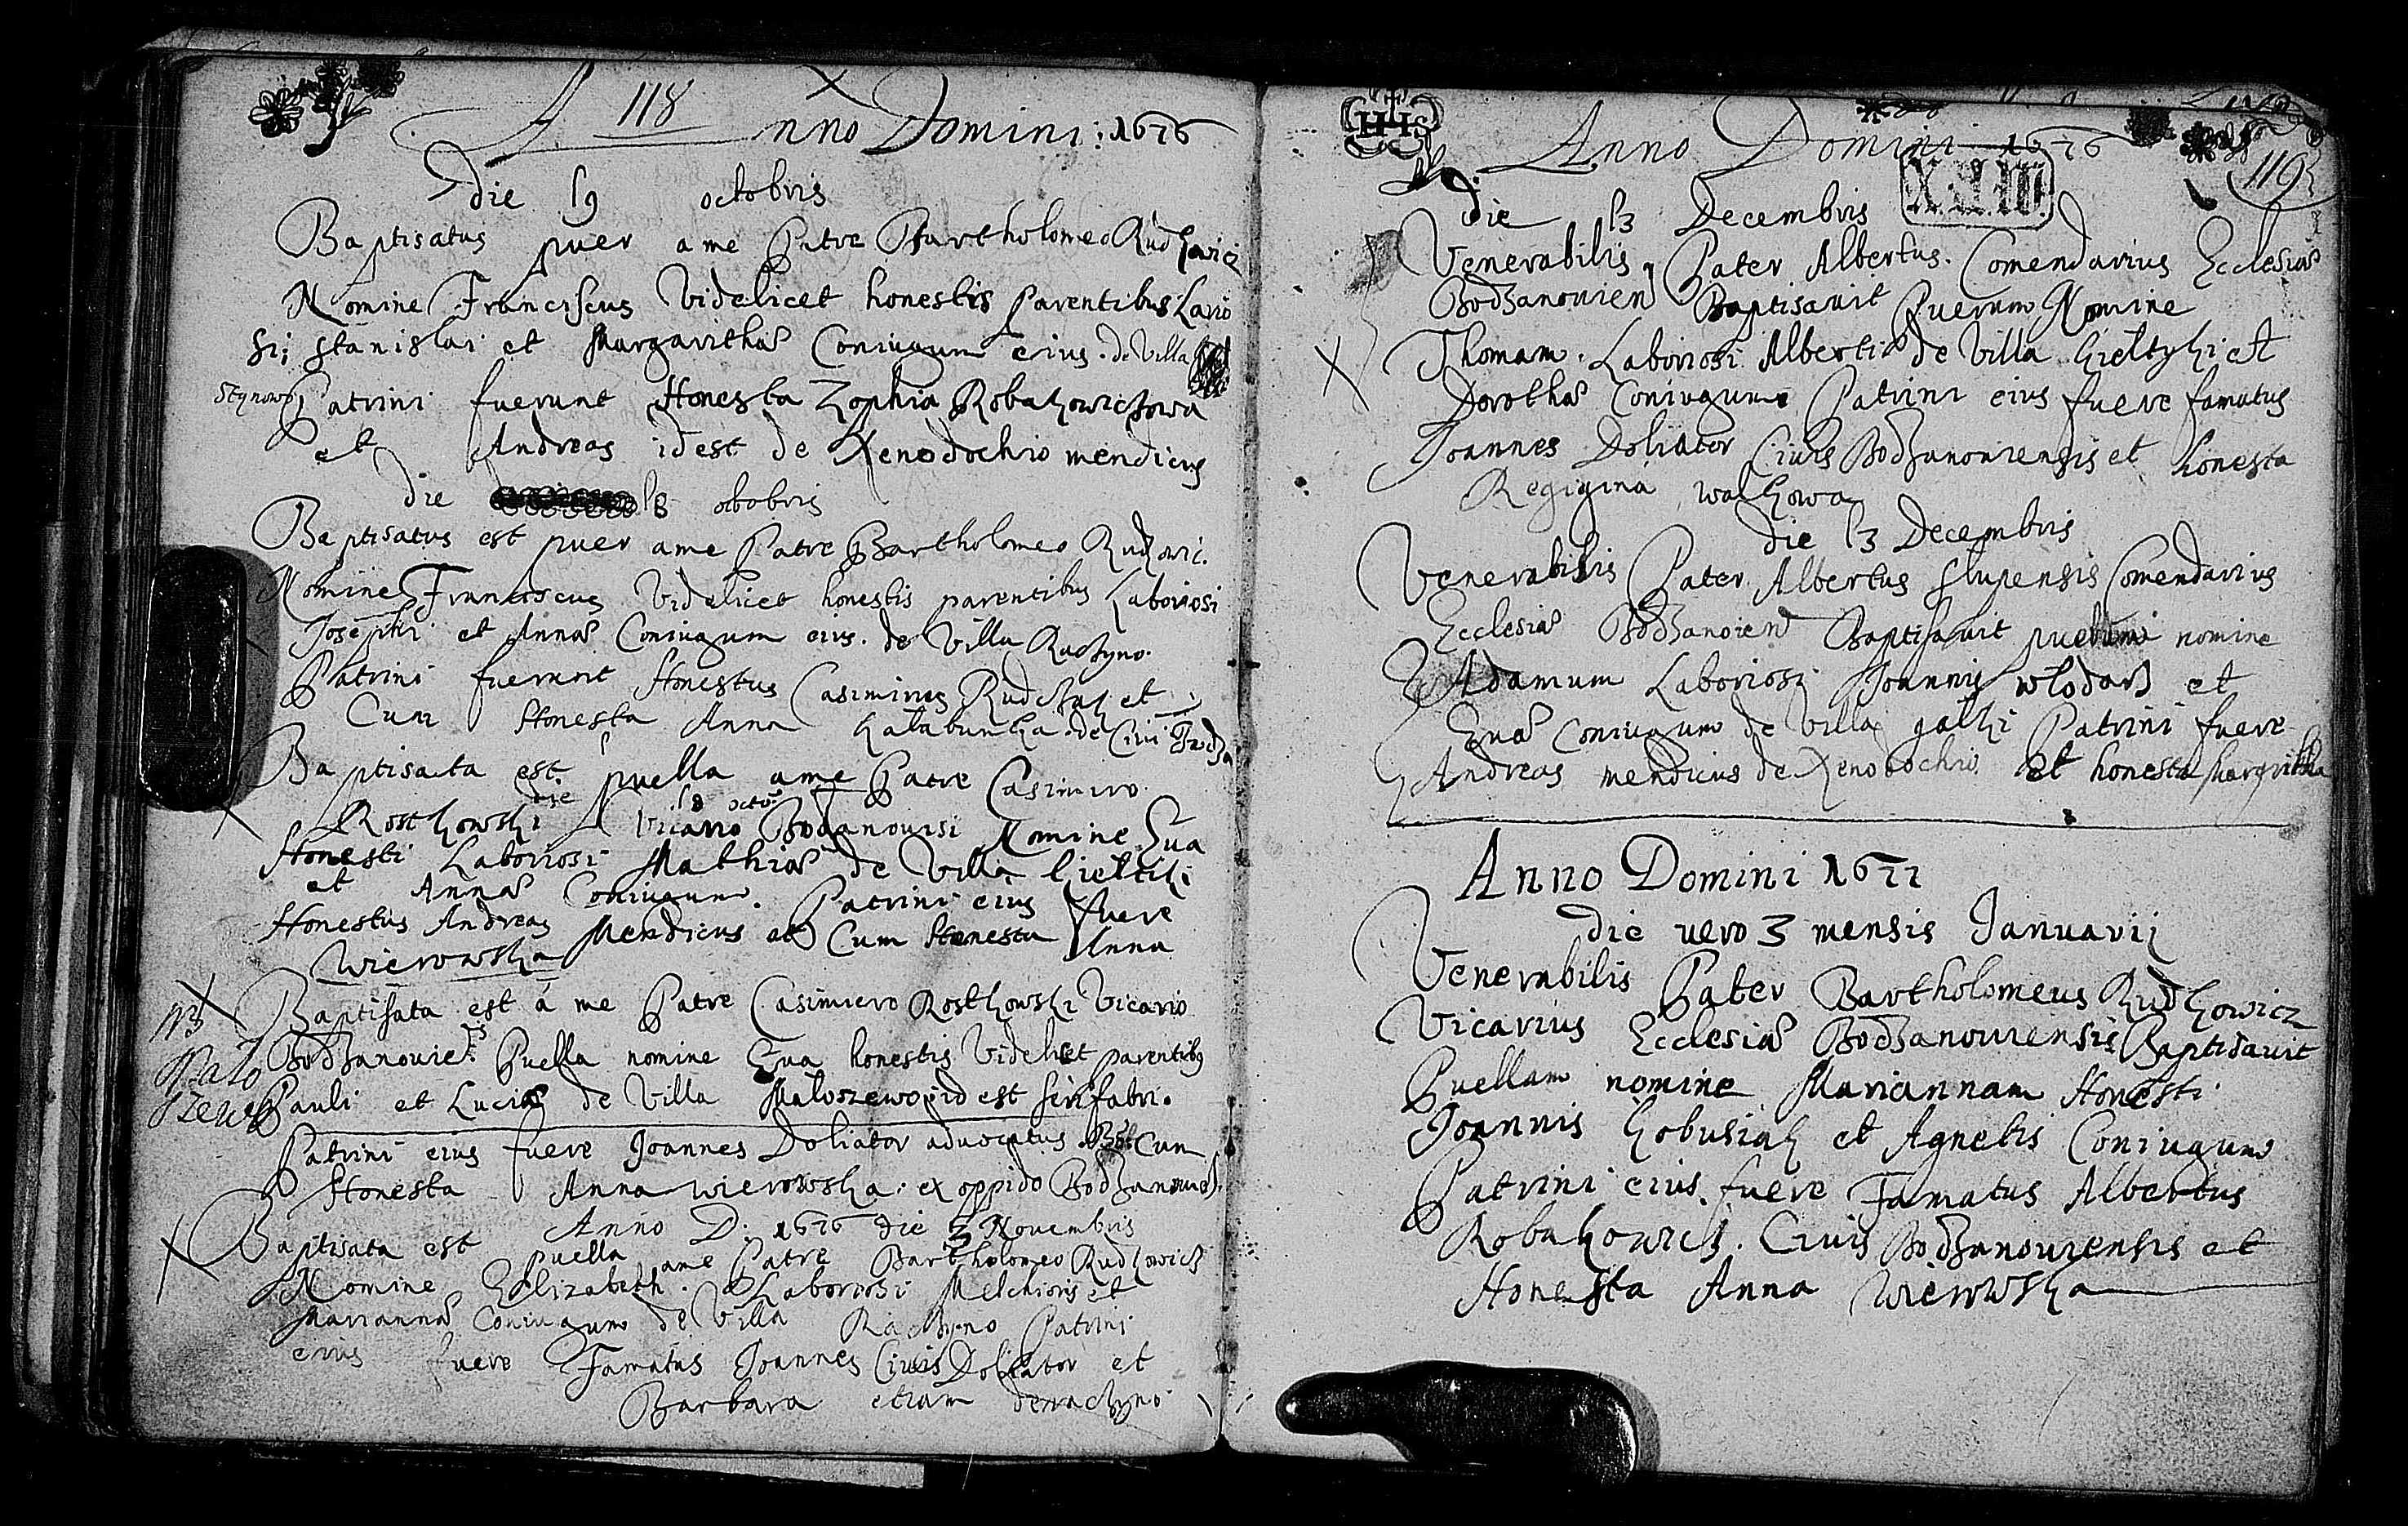 118
Anno Domini: 1676
die 19 octobris
Baptisatus puer a me Patre Bartholomeo Rudkowicz
Nomine Franciscus Videlicet honestis parentibus Lario
si; Stanislai et Margarithæ Coniugum eius. de Villa
Stynowo
Patrini fuerunt Honesta Zophia Robakowiczowa
et Andreas id est de Xenodochio mendicus
die 18 octobris
Baptisatus est puer a me Patre Bartholomeo Rudkowic.
Nomine Franciscus Videlicet honestis parentibus Laboriosi
Josephi et Annæ Coniugum eius. de Villa Raczyno.
Patrini fuerunt Honestus Casimirus Rudczak et
Cum Honesta Anna Kalabunka de
Baptisata est puella a me Patre Casimiro
die 18 octo
Rostkowski Vicario Bodzanouisi Nomine Eua
Honesti Laboriosi Mathiæ de Villa
et Annæ Coniugum. Patrini eius fuere
Honestus Andreas Mendicus et Cum Honesta Anna
Wierowska
Baptisata est á me Patre Casimiero Rostkowski Vicario
Bodzanouień. Puella nomine Eua honestis Videlicet parentibus
Pauli et Luciæ de Villa Małoszewo id est ferifabri.
Mało
szewo
Patrini eius fuere Joannes Doliator aduocatus Cum
Honesta Anna wierowska: ex oppido Bodzanoueń
Anno D: 1676 die 3 Nouembris
Baptisata est puella a me Patre Bartholomeo Rudkowicz
Nomine Elizabeth. Laboriosi Melchioris et
Mariannæ Coniugum de Villa Raczyno Patrini
eius fuere Famatus Joannes Ciuis Doliator et
Barbara etiam de raczyno
IHS
Anno Domini 1676
119
die 13 Decembris
Venerabilis Pater Albertus. Comendarius Ecclesiæ
Bodzanouien Baptisauit Puerum Nomine
Thomam. Laboriosi Alberti de Villa kieltyki et
Dorothæ Coniugum Patrini eius fuere famatus
Joannes Doliator Ciuis Bodzanouiensis et honesta
Regigina walkowa
die 13 Decembris
Venerabilis Pater Albertus Slupensis Comendarius
Ecclesiæ Bodzanoien Baptisauit puerum nomine
Adamum Laboriosi Joannis włodarz et
Euæ Coniugum de Villa galki Patrini fuere
Andreas mendicus de Xenodochio. et honesta Margritha
Anno Domini 1677
die uero 3 mensis Januarij
Venerabilis Pater Bartholomeus Rudkowicz
Vicarius Ecclesiæ Bodzanouiensis Baptisauit
Puellam nomine Mariannam Honesti
Joannis kobusiak et Agnetis Coniugum
Patrini eius fuere Famatus Albertus
Robakowicz. Ciuis Bodzanouiensis et
Honesta Anna Wierowska